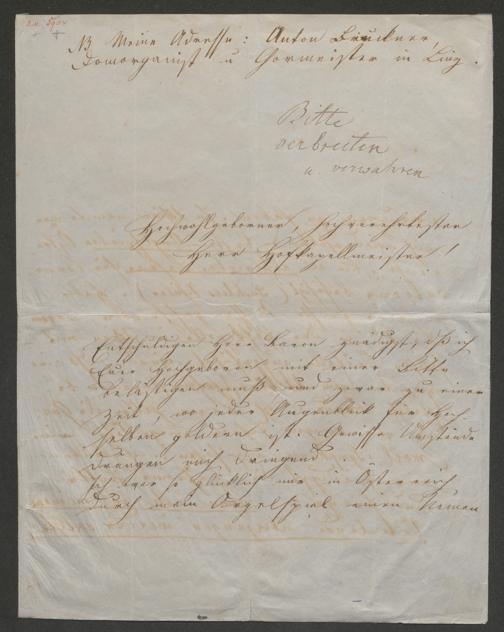 NB Meine Adresse: Anton Bruckner,
Domorganist u Chormeister in Linz.
Bitte
verbreiten
u. verwahren
Hochwohlgeborner, hochverehrtester
Herr Hofkapellmeister!
Entschuldigen Herr Baron gnädigst, daß ich
Euer Hochgeboren mit einer Bitte
belästigen muß, und zwar zu einer
Zeit, wo jeder Augenblick für Hoch-
selben golden ist. Gewisse Umstände
drängen mich dringend.
Ich war so glücklich mir in Österreich
durch mein Orgelspiel einen Namen